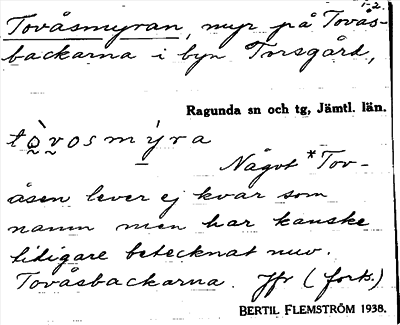 1-2.
Tovåsmyran, myr på Tovås-
backarna i byn Torsgård,
Ragunda sn och tg, Jämtl. län.
tòvosmýra
Något *Tov-
åsen lever ej kvar som
namn men har kanske
tidigare betecknat nuv.
Tovåsbackarna. Jfr (forts.)
BERTIL FLEMSTRÖM 1938.